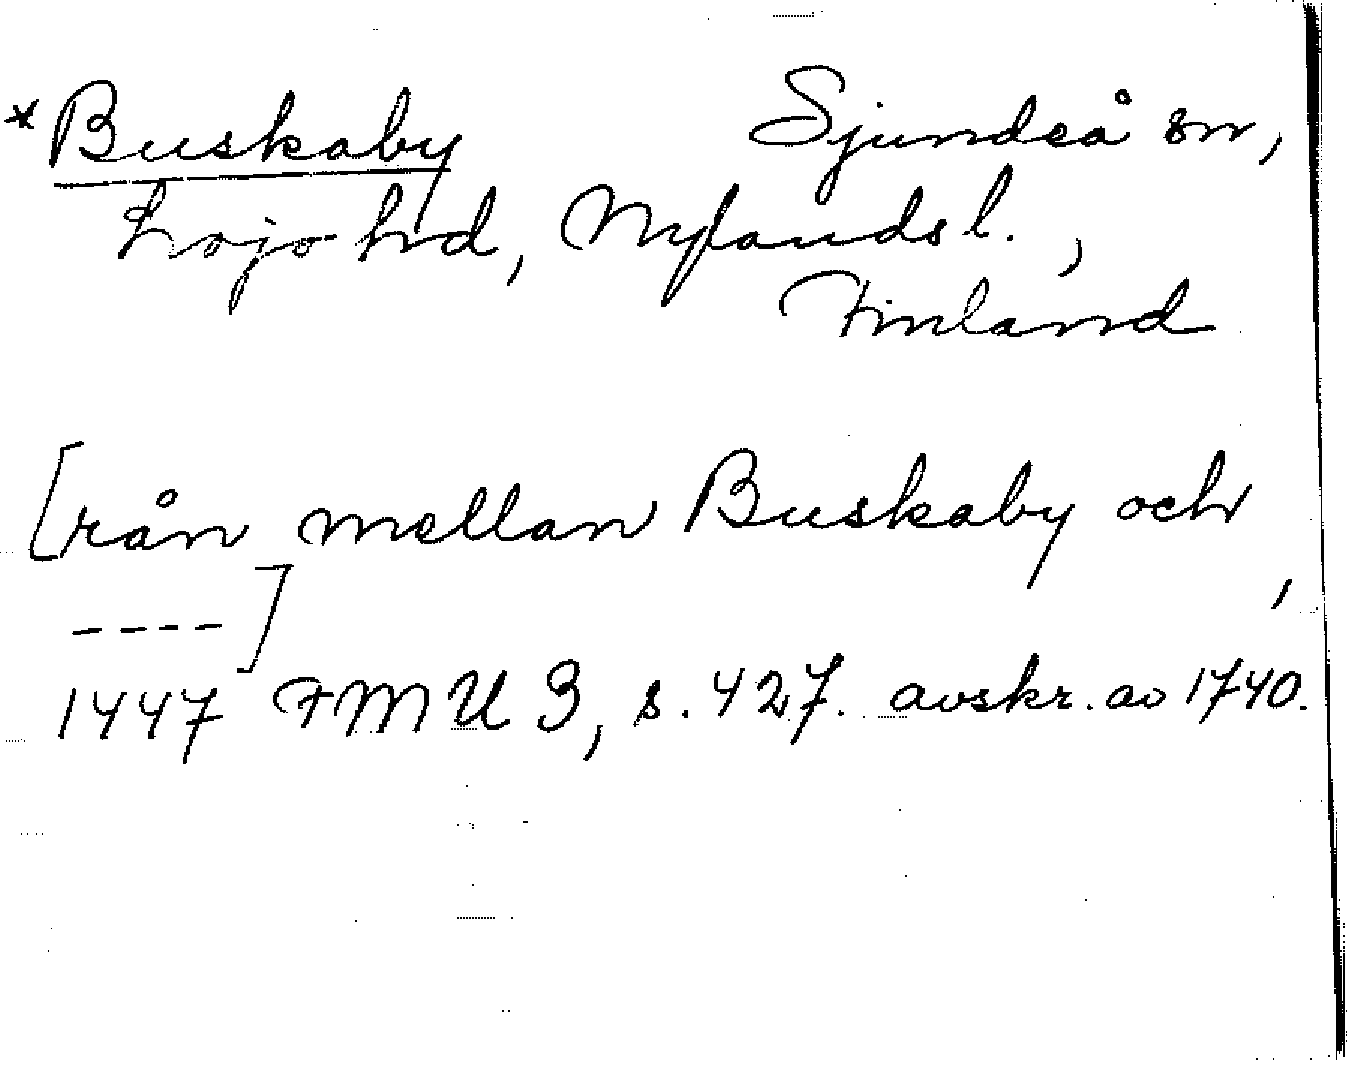 *Buskaby Sjundeå sn,
Lojo hd, Nylands l.,
Finland
[rån mellan Buskaby och
----],
1447 FMU 3, s. 427. avskr. av 1740.